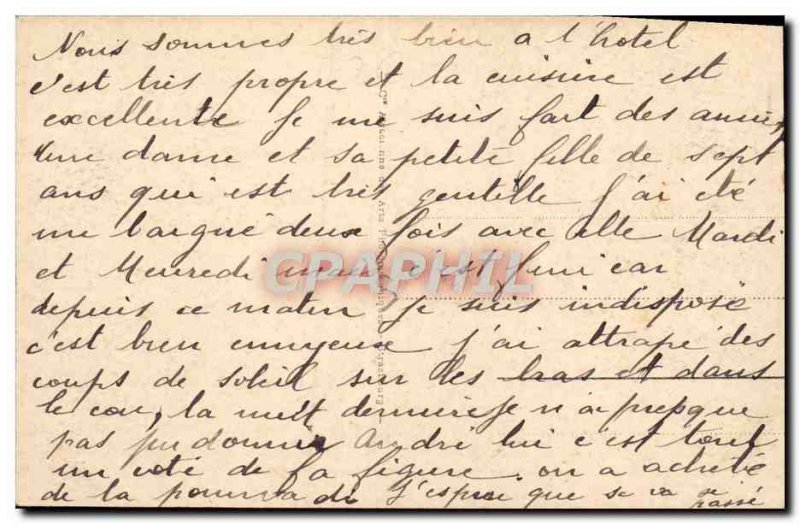 Nous sommes très bien a l'hotel
c'est très propre et la cuisine est
excellente Je me suis fait des amies,
Une dame et sa petite fille de sept
ans qui est très gentille J'ai été
me baigné deux fois avec elle Mardi
et Mercredi mais c'est fini car
depuis ce matin je suis indisposé
c'est bien ennuyeuse J'ai attrapé des
coups de soleil sur les bras et dans
le cou, la nuit derniere Je n'ai presque
pas pu dormir André lui c'est tout
un coté de sa figure on a acheté
de la pommade J'espère que se va se
passé
CPARPHIL